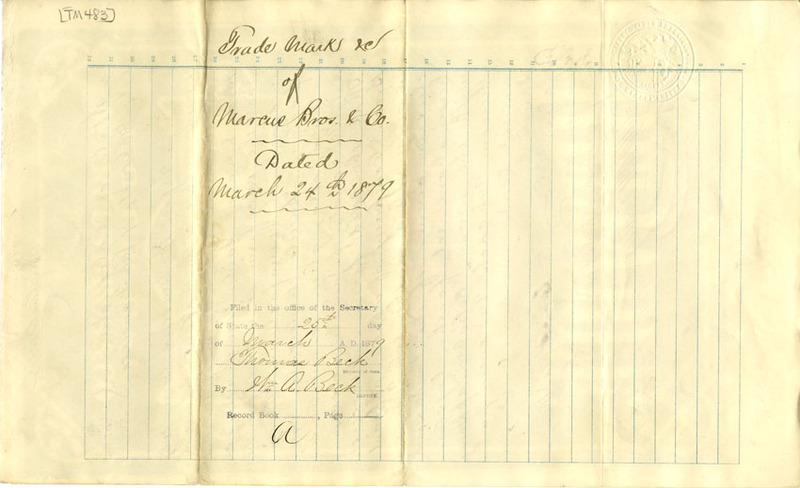 [TM 483]
Trade Marks &c
of
Marcus Bros. & Co.
Dated
March 24th 1879
Filed in the office of the Secretary
of State the 25th day
of March A. D. 1879
Thomas Beck
Secretary of State
By Wm A. Beck
Deputy
Record Book , Page
a